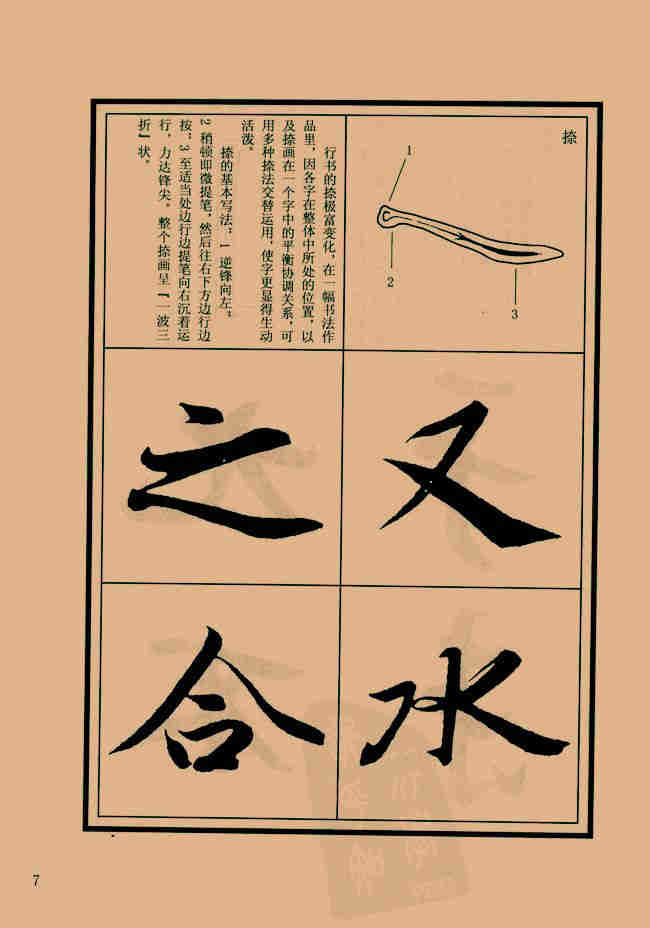 捺
1
2
3
行书的捺极富变化，在一幅书法作
品里，因各字在整体中所处的位置，以
及捺画在一个字中的平衡协调关系，可
用多种捺法交替运用，使字更显得生动
活泼。
捺的基本写法：1 逆锋向左。
2 稍顿即微提笔，然后往右下方边行边
按；3 至适当处边行边提笔向右沉着运
行，力达锋尖。整个捺画呈『一波三
折』状。
又
之
水
合
7